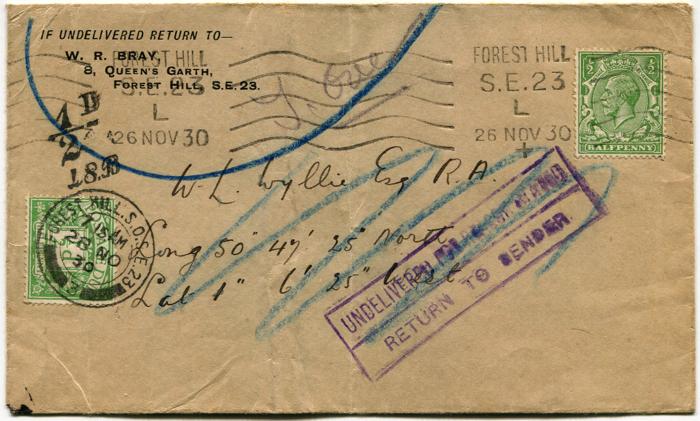 IF UNDELIVERED RETURN TO—
W. R. BRAY,
8, QUEEN'S GARTH,
FOREST HILL, S.E.23.
FOREST HILL
S.E.23
L
26 NOV 30
FOREST HILL
S.E.23
L
26 NOV 30
½
½
HALFPENNY
½D
W. L. Wyllie Esq R.A.
Long 50° 47' 25" North
Lat 1° 6' 25" West
FOREST HILL S.O. S.E.23
15 AM
28 NO
30
UNDELIVERED FOR REASON
RETURN TO SENDER